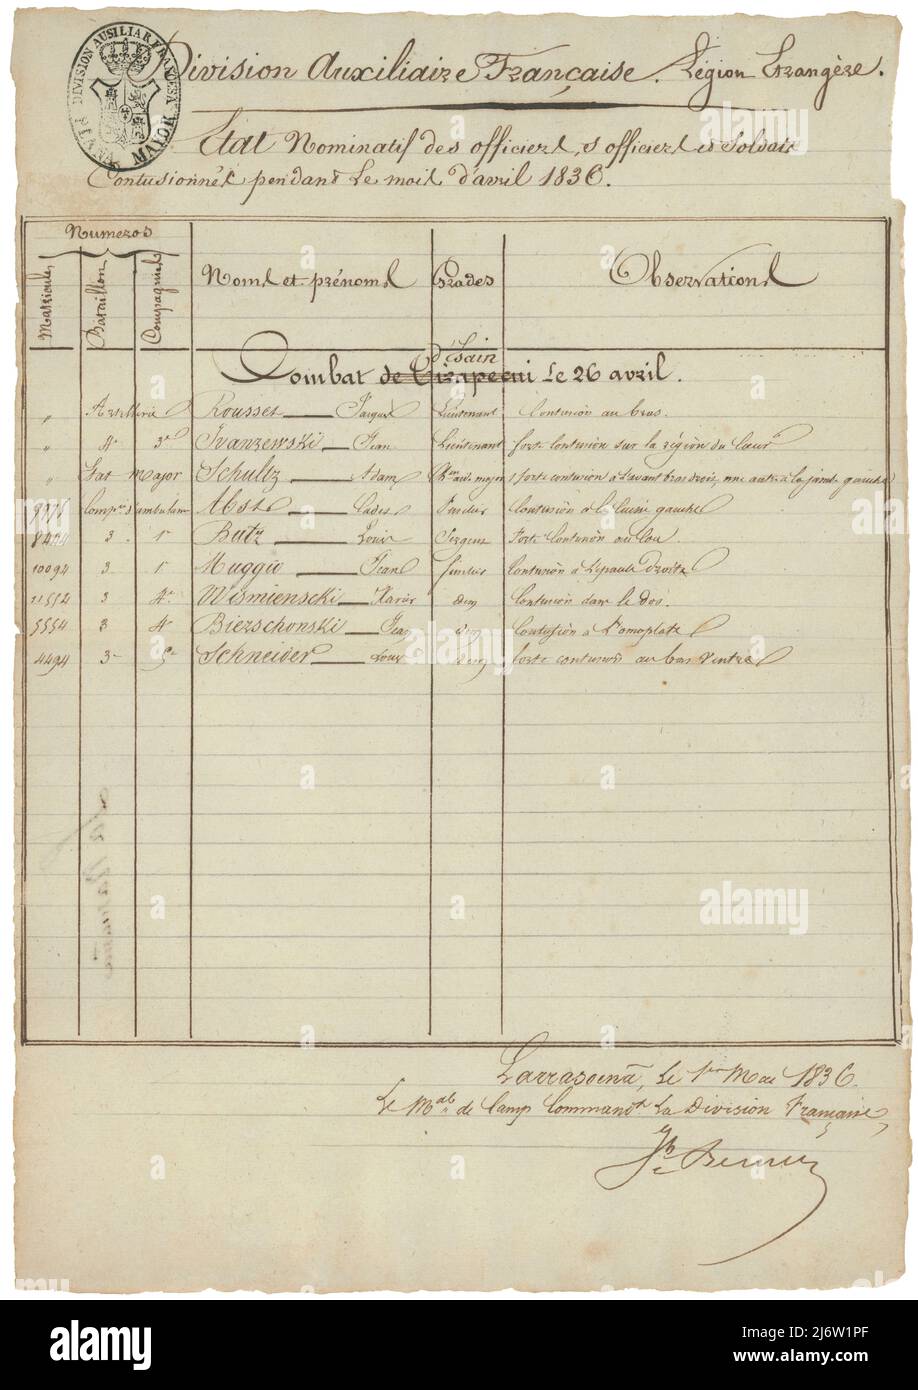 DIVISION AUSILIAR FRANCESA
PLANA MAYOR
Division Auxiliaire Française. Légion Etrangère.
Etat Nominatif des officiers, s officiers et Soldats
Contusionnés pendant le mois d'avril 1836.
Numeros
Matricules Bataillon Compagnies Noms et prénoms Grades Observations
d'Isain
Combat de Tirapegui le 26 avril.
" Artillerie Rousset Jacques Lieutenant Contusion au bras.
" 4e 3e Ivanzewski Jean Lieutenant forte contusion sur la région du Cœur
" Etat Major Schultz Adam major 1 forte contusion à l'avant bras droit, une autre à la jambe gauche
9776 Compie d'ambulance Abst Contusion à la cuisse gauche
3 1e Butz Louis Sergent Forte Contusion au cou.
10094 3 1e Muggio Jean fusilier Contusion à l'épaule droite
3 4e Wismienscki Xavier idem Contusion dans le dos.
5554 3 4e Bierschonski Jean idem Contusion à l'omoplate
4494 3e 5e Schneider Louis idem forte contusion au bas ventre
Larrasoena, le 1er Mai 1836.
Le Mal de Camp Commandt la Division Française,
Jh Bernelle
alamy
alamy
Image ID: 2J6W1PF
www.alamy.com